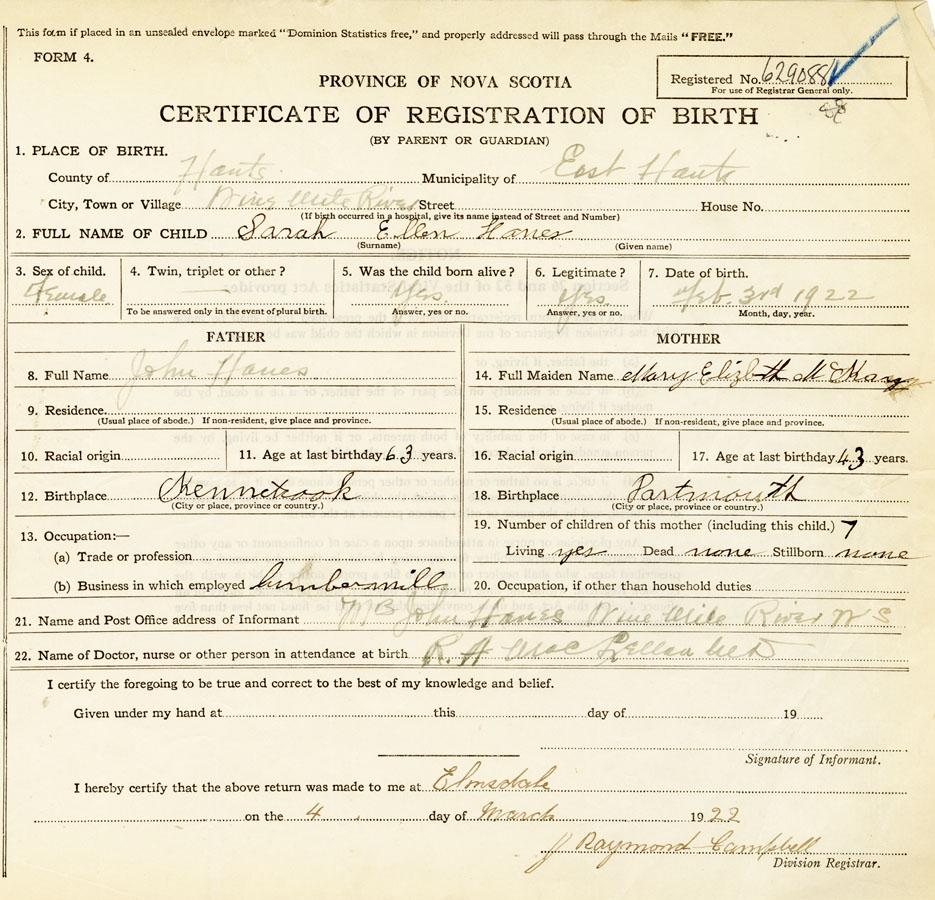 This form if placed in an unsealed envelope marked "Dominion Statistics free," and properly addressed will pass through the Mails "FREE."
FORM 4.
PROVINCE OF NOVA SCOTIA
Registered No. 629088
For use of Registrar General only.
CERTIFICATE OF REGISTRATION OF BIRTH
(BY PARENT OR GUARDIAN)
1. PLACE OF BIRTH.
County of Hants Municipality of East Hants
City, Town or Village Nine Mile River Street House No.
(If birth occurred in a hospital, give its name instead of Street and Number)
2. FULL NAME OF CHILD Sarah Ellen Hanes
(Surname) (Given name)
3. Sex of child. 4. Twin, triplet or other? 5. Was the child born alive? 6. Legitimate? 7. Date of birth.
Female — Yes. Yes. Feb. 3rd 1922
To be answered only in the event of plural birth. Answer, yes or no. Answer, yes or no. Month, day, year.
FATHER
8. Full Name John Hanes
9. Residence
(Usual place of abode.) If non-resident, give place and province.
10. Racial origin 11. Age at last birthday 63 years.
12. Birthplace Kennetcook
(City or place, province or country.)
13. Occupation:—
(a) Trade or profession
(b) Business in which employed lumber mill
MOTHER
14. Full Maiden Name Mary Elizbth McKay
15. Residence
(Usual place of abode.) If non-resident, give place and province.
16. Racial origin 17. Age at last birthday 43 years.
18. Birthplace Dartmouth
(City or place, province or country.)
19. Number of children of this mother (including this child.) 7
Living yes Dead none Stillborn none
20. Occupation, if other than household duties
21. Name and Post Office address of Informant John Hanes Nine Mile River N S
22. Name of Doctor, nurse or other person in attendance at birth R. A Mac Lellan
I certify the foregoing to be true and correct to the best of my knowledge and belief.
Given under my hand at this day of 19
Signature of Informant.
I hereby certify that the above return was made to me at Elmsdale
on the 4 day of March 1922
J Raymond Campbell
Division Registrar.